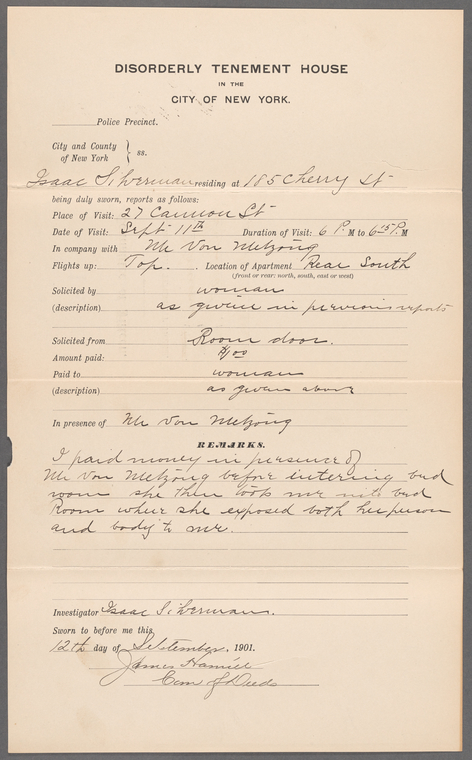 DISORDERLY TENEMENT HOUSE
IN THE
CITY OF NEW YORK.
Police Precinct.
City and County
of New York } ss.
Isaac Silverman residing at 185 Cherry St
being duly sworn, reports as follows:
Place of Visit: 27 Cannon St
Date of Visit: Sept 11th Duration of Visit: 6 P. M to 6 15 P. M
In company with Mr Von Metzöng
Flights up: Top. Location of Apartment Rear South
(front or rear: north, south, east or west)
Solicited by woman
(description) as givine in pervious reports
Solicited from Room door.
Amount paid: $1/00
Paid to woman
(description) as given above
In presence of Mr Von Metzöng
REMARKS.
I paid money in persence of
Mr Von Metzöng before intering bed
room she then took me into bed
Room where she exposed both her person
and body to me.
Investigator Isaac Silverman.
Sworn to before me this
12th day of September, 1901.
James Hamill
Com of Deeds